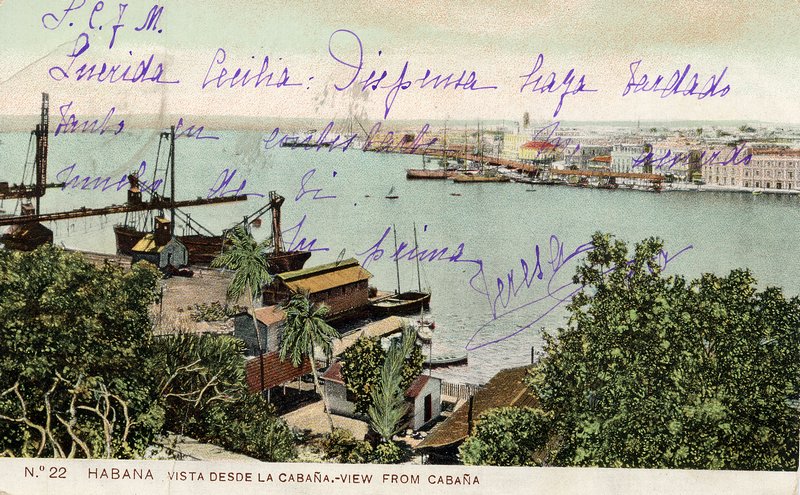 S. C. J M.
Querida Cecilia: Dispensa haya tardado
tanto en contestarte
mucho de ti.
Tu prima Teresa
N.º 22 HABANA VISTA DESDE LA CABAÑA.-VIEW FROM CABAÑA